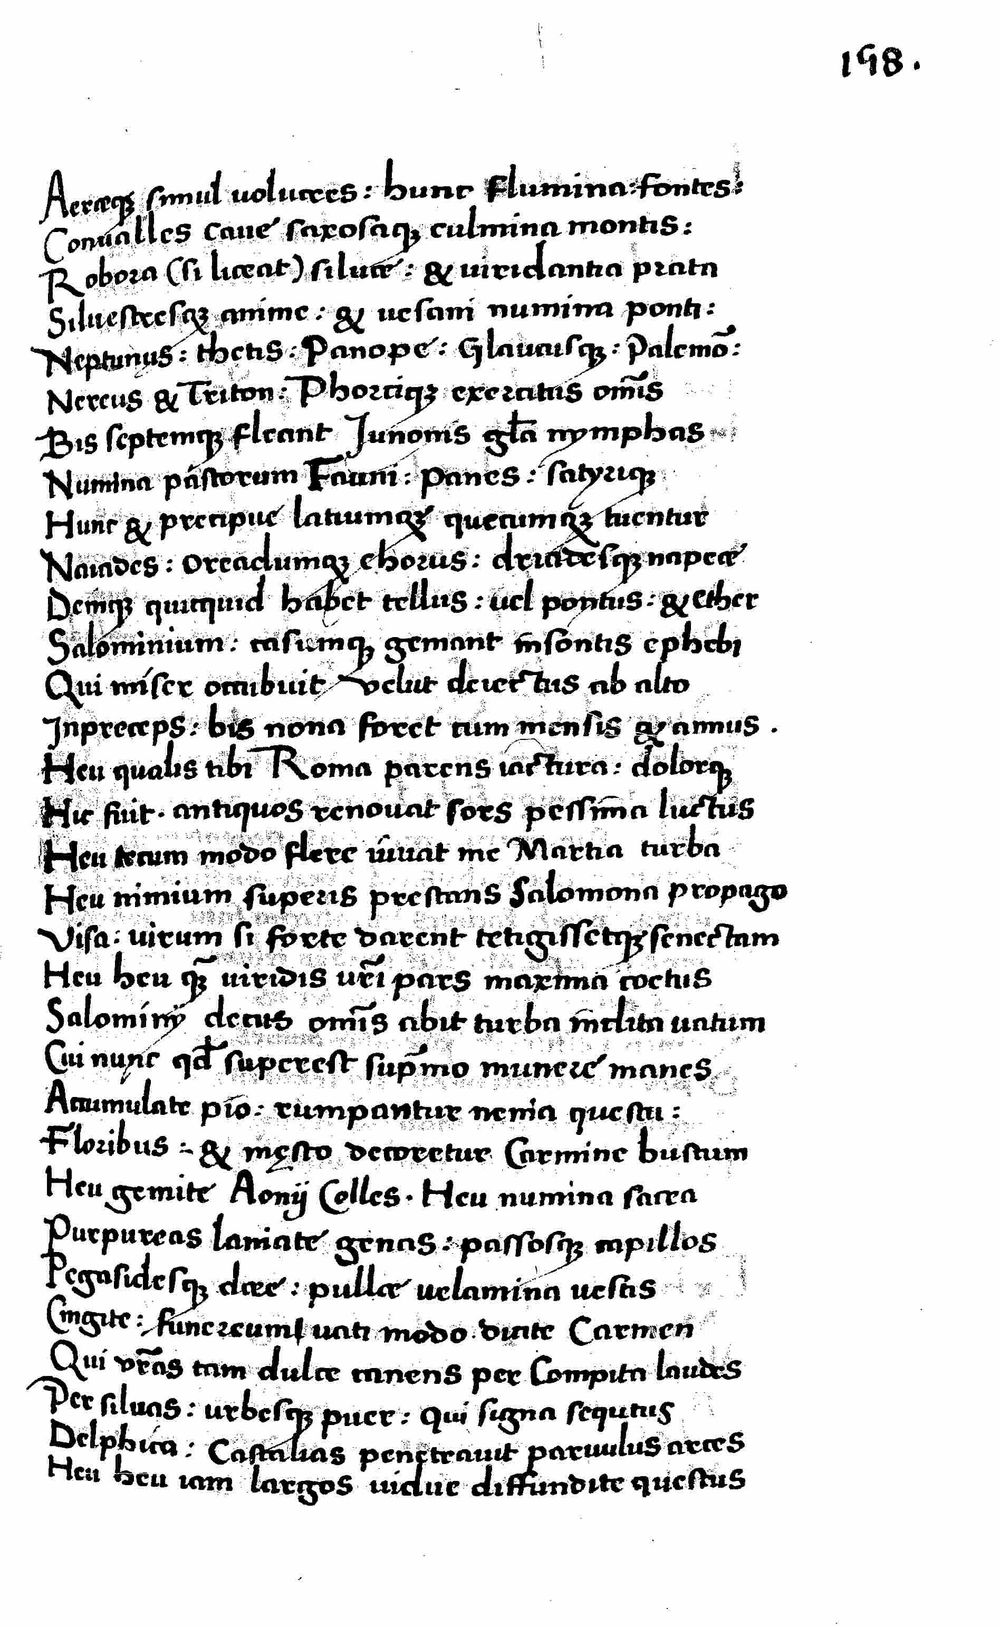 198.
Aereęq; simul uolucres : hunc flumina : fontes :
Conualles cauę saxosaq; culmina montis :
Robora (si liceat) siluæ : & uiridantia prata
Siluestresq; anime : & uesani numina ponti :
Neptunus : thetis : Panope : Glaucusq; : Palemō :
Nereus & Triton : Phorciq; exercitus om̄is
Bis septemq; fleant Junonis gl̄a nymphas
Numina pastorum Fauni : panes : satyriq;
Hunc & precipue latiumq; quecumq; tuentur
Naiades : oreadumq; chorus : driadesq; napeæ
Deniq; quicquid habet tellus : uel pontus : & ether
Salominium : casumq; gemant īnsontis ephebi
Qui miser occubuit velut deiectus ab alto
Inpreceps : bis nona foret cum mensis & annus .
Heu qualis tibi Roma parens iactura : dolorq;
Hic fuit . antiquos renouat sors pessīma luctus
Heu tecum modo flere iūuat me Martia turba
Heu nimium superis prestans Salomona propago
Visa : uirum si forte darent tetigissetq; senectam
Heu heu q̄; uiridis ur̄i pars maxima coetus
Salominij decus om̄is abit turba īnclita uatum
Cui nunc qđ superest sup̄mo munere manes
Accumulate pio : rumpantur nenia questu :
Floribus : & męsto decoretur Carmine bustum
Heu gemite Aonij Colles . Heu numina sacra
Purpureas laniate genas : passosq; capillos
Pegasidesq; deæ : pullæ uelamina uestis
Cingite : funereum uati modo dicite Carmen
Qui vr̄as tam dulce canens per Compita laudes
Per siluas : urbesq; puer : qui signa sequtus
Delphica : Castalias penetrauit paruulus arces
Heu heu iam largos uidue diffundite questus